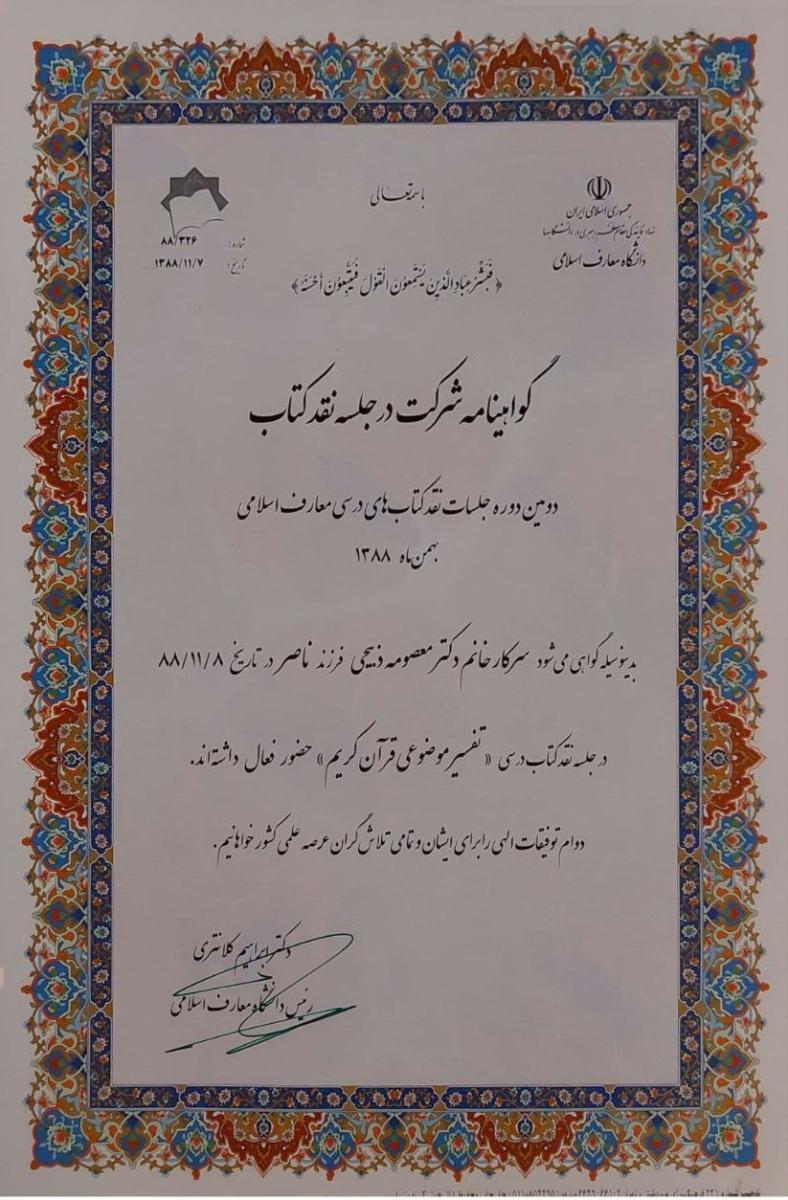 باسمه‌تعالی
جمهوری اسلامی ایران
نهاد نمایندگی مقام معظم رهبری در دانشگاهها
دانشگاه معارف اسلامی
شماره: ۸۸/۳۲۶
تاریخ: ۱۳۸۸/۱۱/۷
﴿فَبَشِّرْ عِبَادِ الَّذِینَ یَسْتَمِعُونَ الْقَوْلَ فَیَتَّبِعُونَ أَحْسَنَهُ﴾
گواهینامه شرکت در جلسه نقد کتاب
دومین دوره جلسات نقد کتاب‌های درسی معارف اسلامی
بهمن ماه ۱۳۸۸
بدینوسیله گواهی می‌شود سرکار خانم دکتر معصومه ذبیحی فرزند ناصر در تاریخ ۸۸/۱۱/۸
در جلسه نقد کتاب درسی «تفسیر موضوعی قرآن کریم» حضور فعال داشته‌اند.
دوام توفیقات الهی را برای ایشان و تمامی تلاش‌گران عرصه علمی کشور خواهانیم.
دکتر ابراهیم کلانتری
رئیس دانشگاه معارف اسلامی